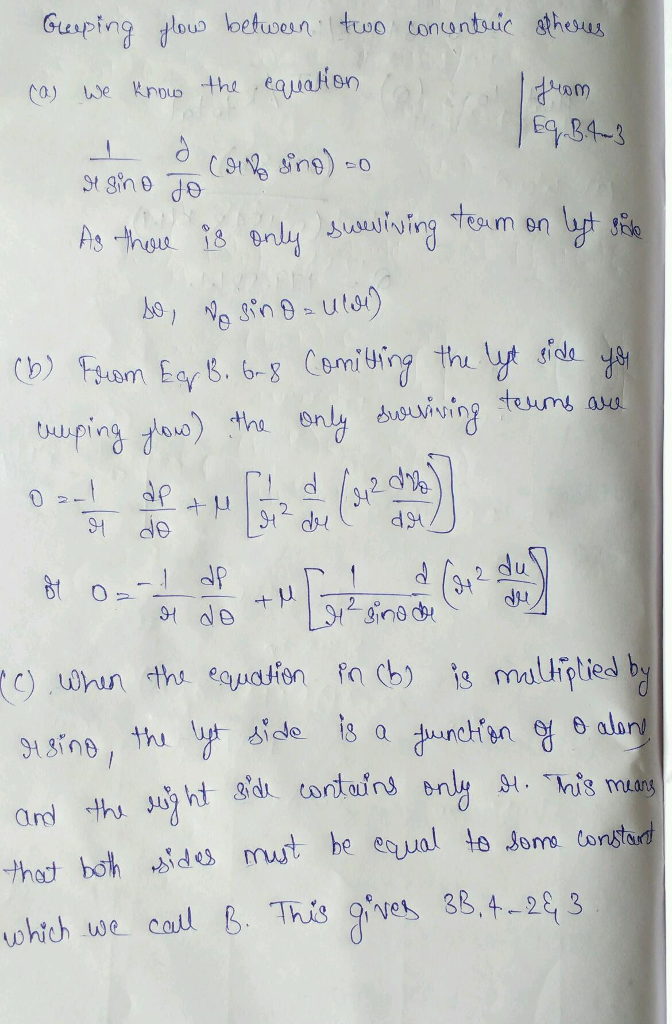 Creeping flow between two concentric spheres
(a) we know the equation | from Eq. B.4-3
1/(r sinθ) ∂/∂θ (r v_θ sinθ) = 0
As there is only surviving term on left side
so, v_θ sinθ = u(r)
(b) From Eq B. 6-8 (omitting the left side for
creeping flow) the only surviving terms are
0 = -1/r dp/dθ + μ [1/r² d/dr (r² dv_θ/dr)]
or 0 = -1/r dp/dθ + μ [1/(r² sinθ) d/dr (r² du/dr)]
(c) When the equation in (b) is multiplied by
r sinθ, the left side is a function of θ alone
and the right side contains only r. This means
that both sides must be equal to some constant
which we call B. This gives 3B.4-2 & 3